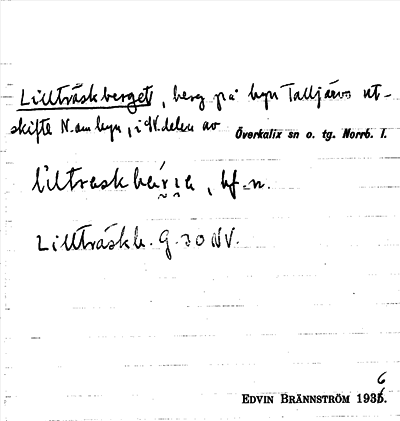 Lillträskberget, berg på byn Talljärvs ut-
skifte N. om byn, i N. delen av Överkalix sn o. tg. Norrb. l.
liltraskbär̯i̯e, bf. n.
Lillträskb. G. 30 NV.
EDVIN BRÄNNSTRÖM 1936.